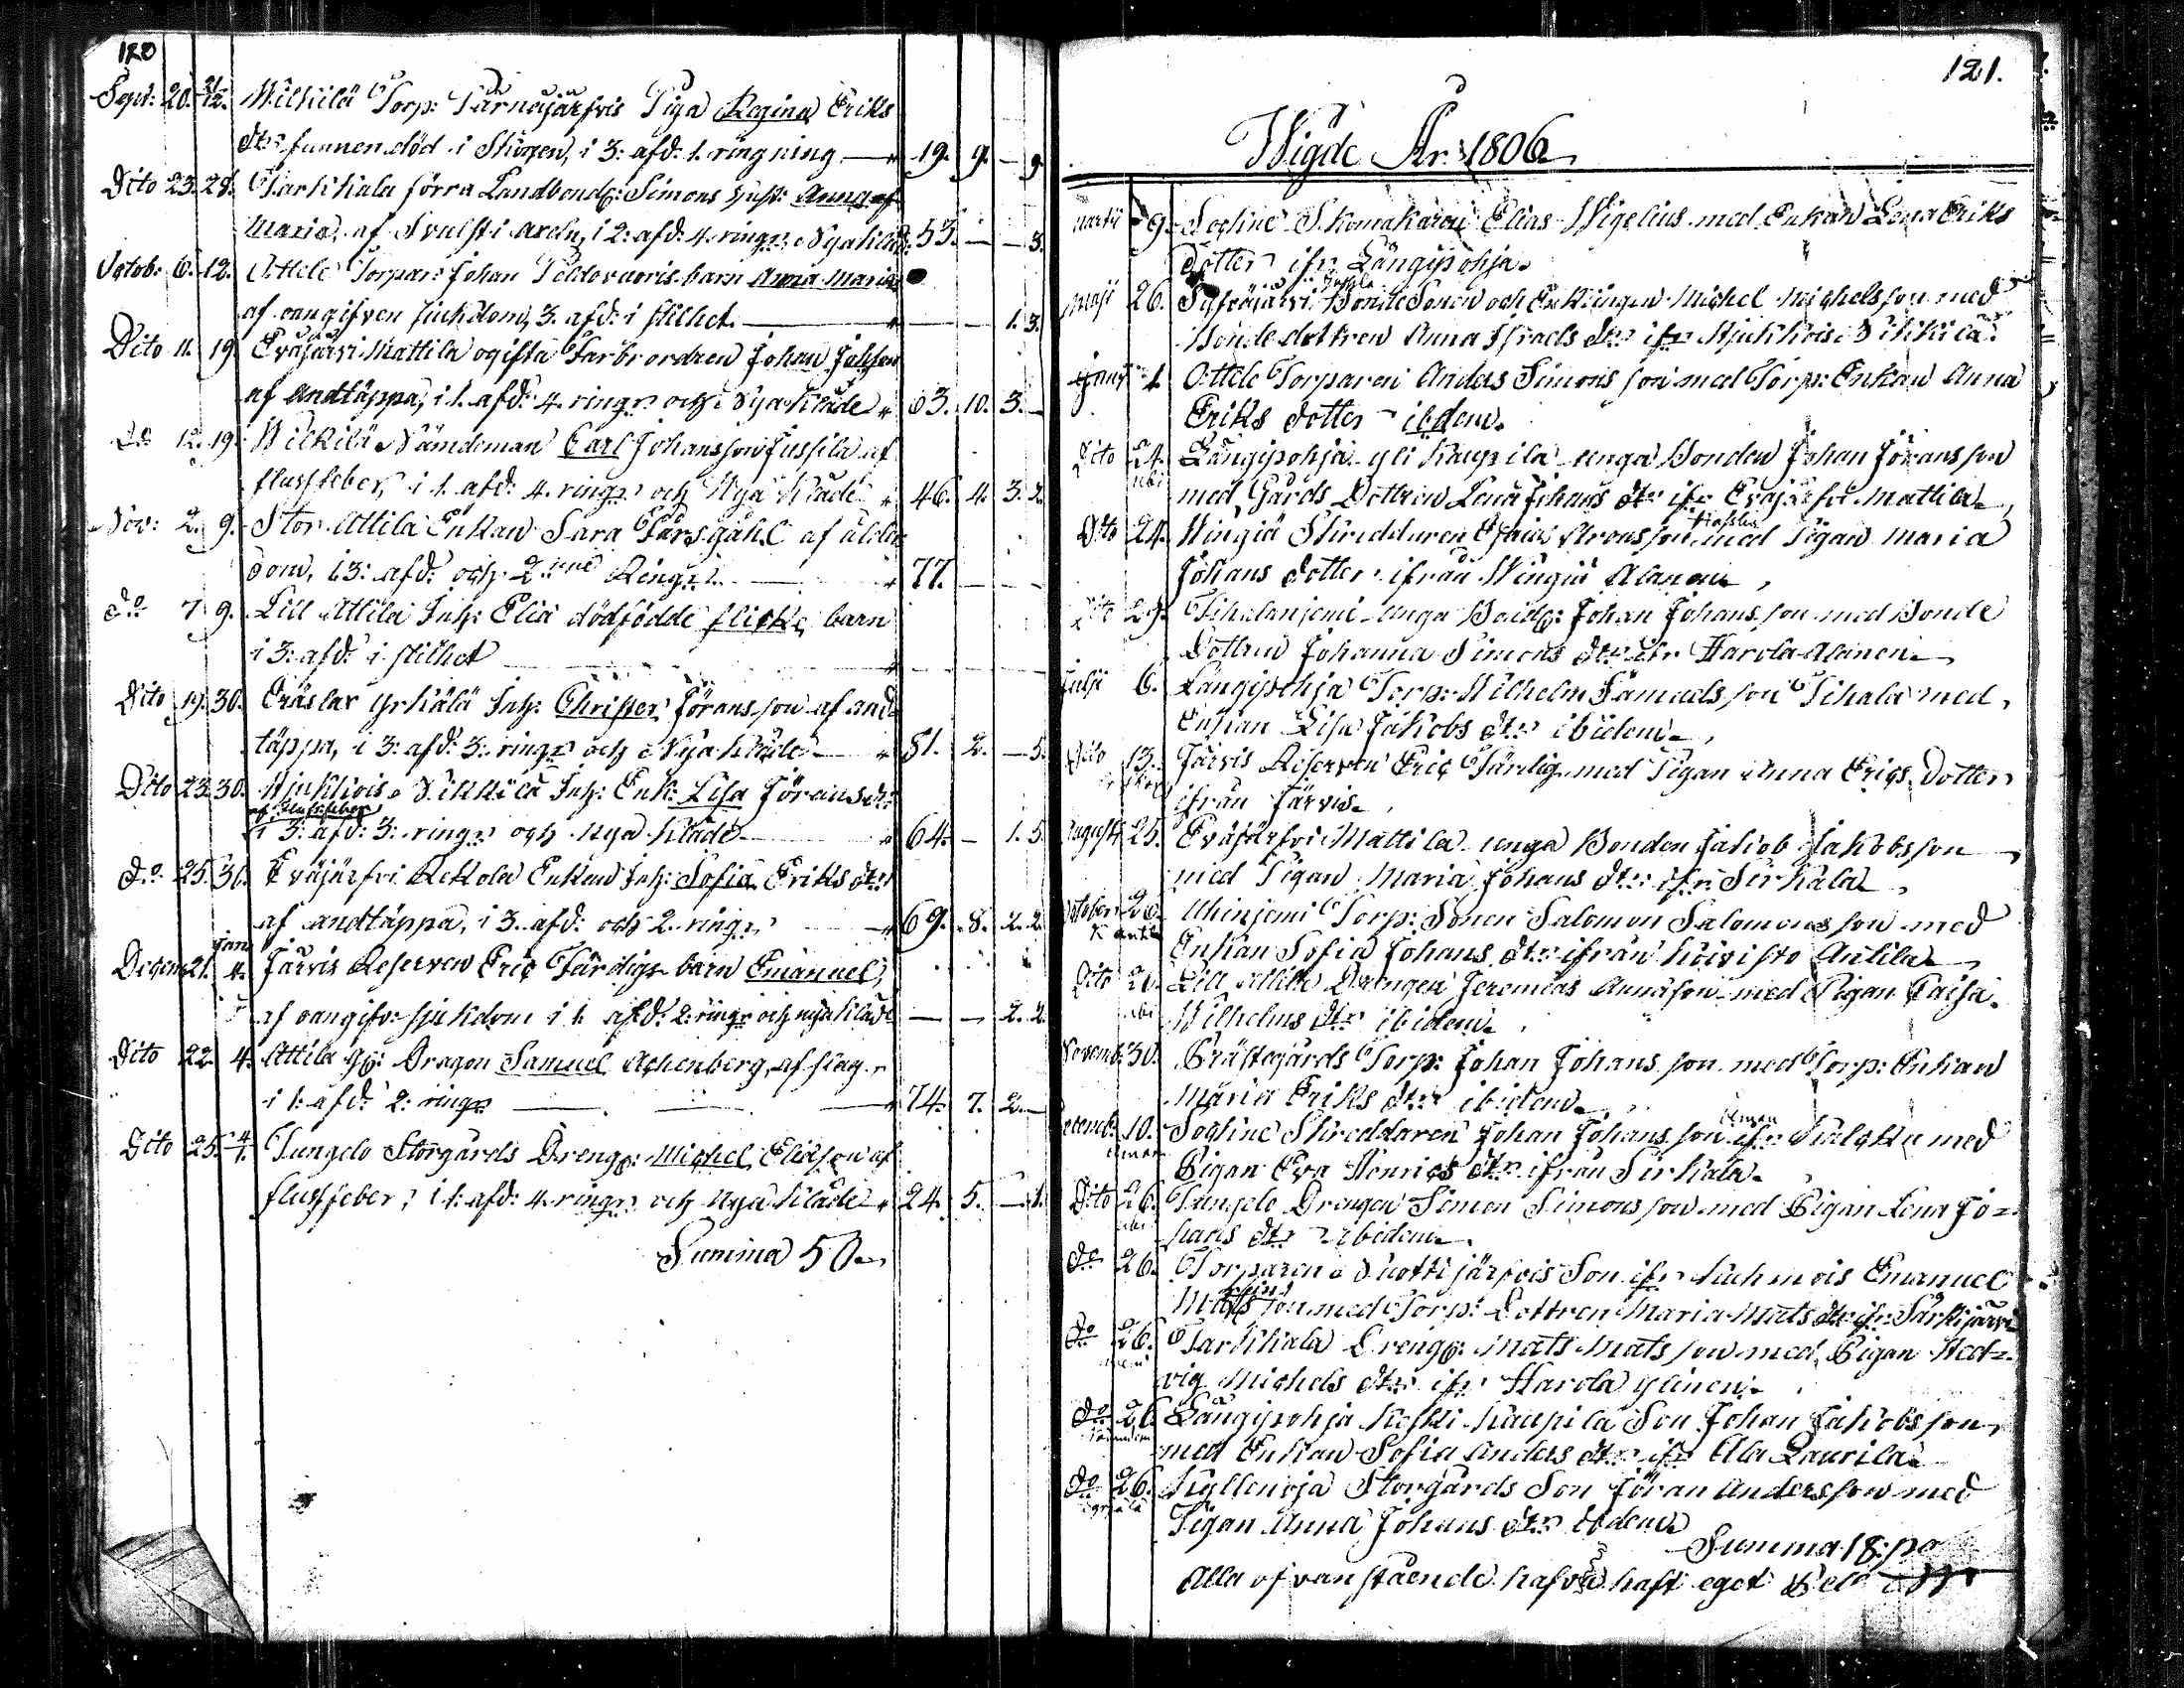 120
Sept: 20. 21/12. Wilkilä Torp: Tärnäjärfvis Piga Regina Eriks
dtr funnen död i Skogen, i 3: afd: 1. ringning 19. 9. — 9.
Dito 23. 28. Tarkkala förra Landbond: Simons hust: Anna
Maria, af Svulst i Axeln, i 2: afd: 4. ringr: Nya Kläde 53. — — 3.
Octob: 6. 12. Ottele Torpar: Johan Peldovuoris barn Anna Maria
af oangifven siukdom, 3. afd: i stilhet — — 1. 3.
Dito 11. 19. Eräjärvi Mattila ogifta Farbrordren Johan Johsson
af Andtäppa, i 1. afd: 4. ringr och Nya Kläde 63. 10. 3. —
Do 12. 19. Wilkilä Nämdeman Carl Johansson Jussila af
flussfeber, i 1. afd: 4. ringr: och Nya Kläde 46. 4. 3. 2.
Nov: 2. 9. Stor Attila Enkan Sara Larsgåhl af ålder
dom, i 3: afd: och 2.ne Ringr: 77. — — —
do 7 9. Lill Attila Inh: Elia dödfödde flicke barn
i 3: afd: i stilhet — — — —
Dito 19. 30. Eräslax Yrkälä Inh: Christer Jöransson af and
täppa, i 3: afd: 3: ringr och Nya Kläde 81. 2. — 5.
Dito 23. 30. Wikkilä Inh: Enk: Lisa Jörans dtr
af flussfeber
i 3: afd: 3: ringr och Nya Kläde 64. — 1. 5.
do 25. 30. Eräjärfvi Rekola Enkan Inh: Sofia Eriks dtr
af andtäppa, i 3. afd: och 2. ringr 69. 8. 2. 2.
Decem 21. Jan 4. Järvis Reserven Eric Färdigs barn Emanuel,
af oangifv: sjukdom i 1: afd: 2: ringr och nya Kläde — — 2. 2.
Dito 22 4. Attila gb: Dragon Samuel Achenberg, af slag
i 1: afd: 2: ringr 74. 7. 2. —
Dito 25. 4/1. Tungelo Storgårds Dreng: Michel Eliasson af
flussfeber, i 1: afd: 4. ringr och Nya Kläde 24. 5. — 1.
Summa 50.
121.
Wigde År 1806
Martii 9. Sockne Skomakaren Elias Wigelius med Enkan Lena Eriks
Dotter ifr Längipohja.
Jussila
Maji 26. Bonde Sonen och Enklingen Michel Michelsson med
Bonde dottren Anna Israels dtr ifr Wikkilä
1 Ottele Torparen Anders Simonsson med Torp: Enkan Anna
Eriks dotter ibdem.
Dito 24. Längipohja yli Kaupila unga Bonden Johan Jöransson
ibi
med Gårds Dottren Lena Johans dtr ifr Eräjärfvi Mattila,
Dito 24. Wingiä Skreddaren Aronsson med Pigan Maria
Johans dotter ifrån Wingiä Alanen,
Dito 29. unga Bond: Johan Johansson med Bonde
Dottren Johanna Simons dtr ifr Harola Alanen.
Julii 6. Längipohja Torp: Wilhelm Samuelsson Tihala med
Enkan Lisa Jakobs dtr ibidem,
Dito 13. Järvis Reserven Eric Färdig med Pigan Anna Erics Dotter
ifrån Järvis.
Augusti 25. Eräjärfvi Mattila unga Bonden Jakob Jakobsson
med Pigan Maria Johans dtr: ifr: Sirkala.
October 26. Torp: Sonen Salomon Salomonsson med
Enkan Sofia Johans dtr ifrån Koivisto Antila
Dito 26. Lill Attila Drengen Jeremias Annasson med Pigan Caisa
ibi
Wilhelms dtr ibidem.
Novemb: 30. Prästegårds Torp: Johan Johansson med Torp: Enkan
Maria Eriks dtr ibidem.
Decemb: 10. Sockne Skreddaren Johan Johansson ifr med
Pigan Eva Henrics dtr ifrån Sirkala.
Dito 26. Tungelo Drengen Simon Simonsson med Pigan Lena Jo-
ibi
hans dtr ibidem.
do 26. Torparen Vuottijärfvis Son ifr Emanuel
Matsson med Torp: Dottren Maria Mats dtr ifr: Särkijärvi
do 26. Tarkkala Dreng: Mats Matsson med Pigan Hed-
vig Michels dtr ifr Harola Ylinen.
do 26. Längipohja Koski Kaupila Son Johan Jakobsson
med Enkan Sofia Anders dtr ifr Ala Laurila.
do 26. Hyllenoja Storgårds Son Jöran Andersson med
Pigan Anna Johans dtr ibdem
Summa 18: pa
Alla ofvanstående hafva haft eget Bel